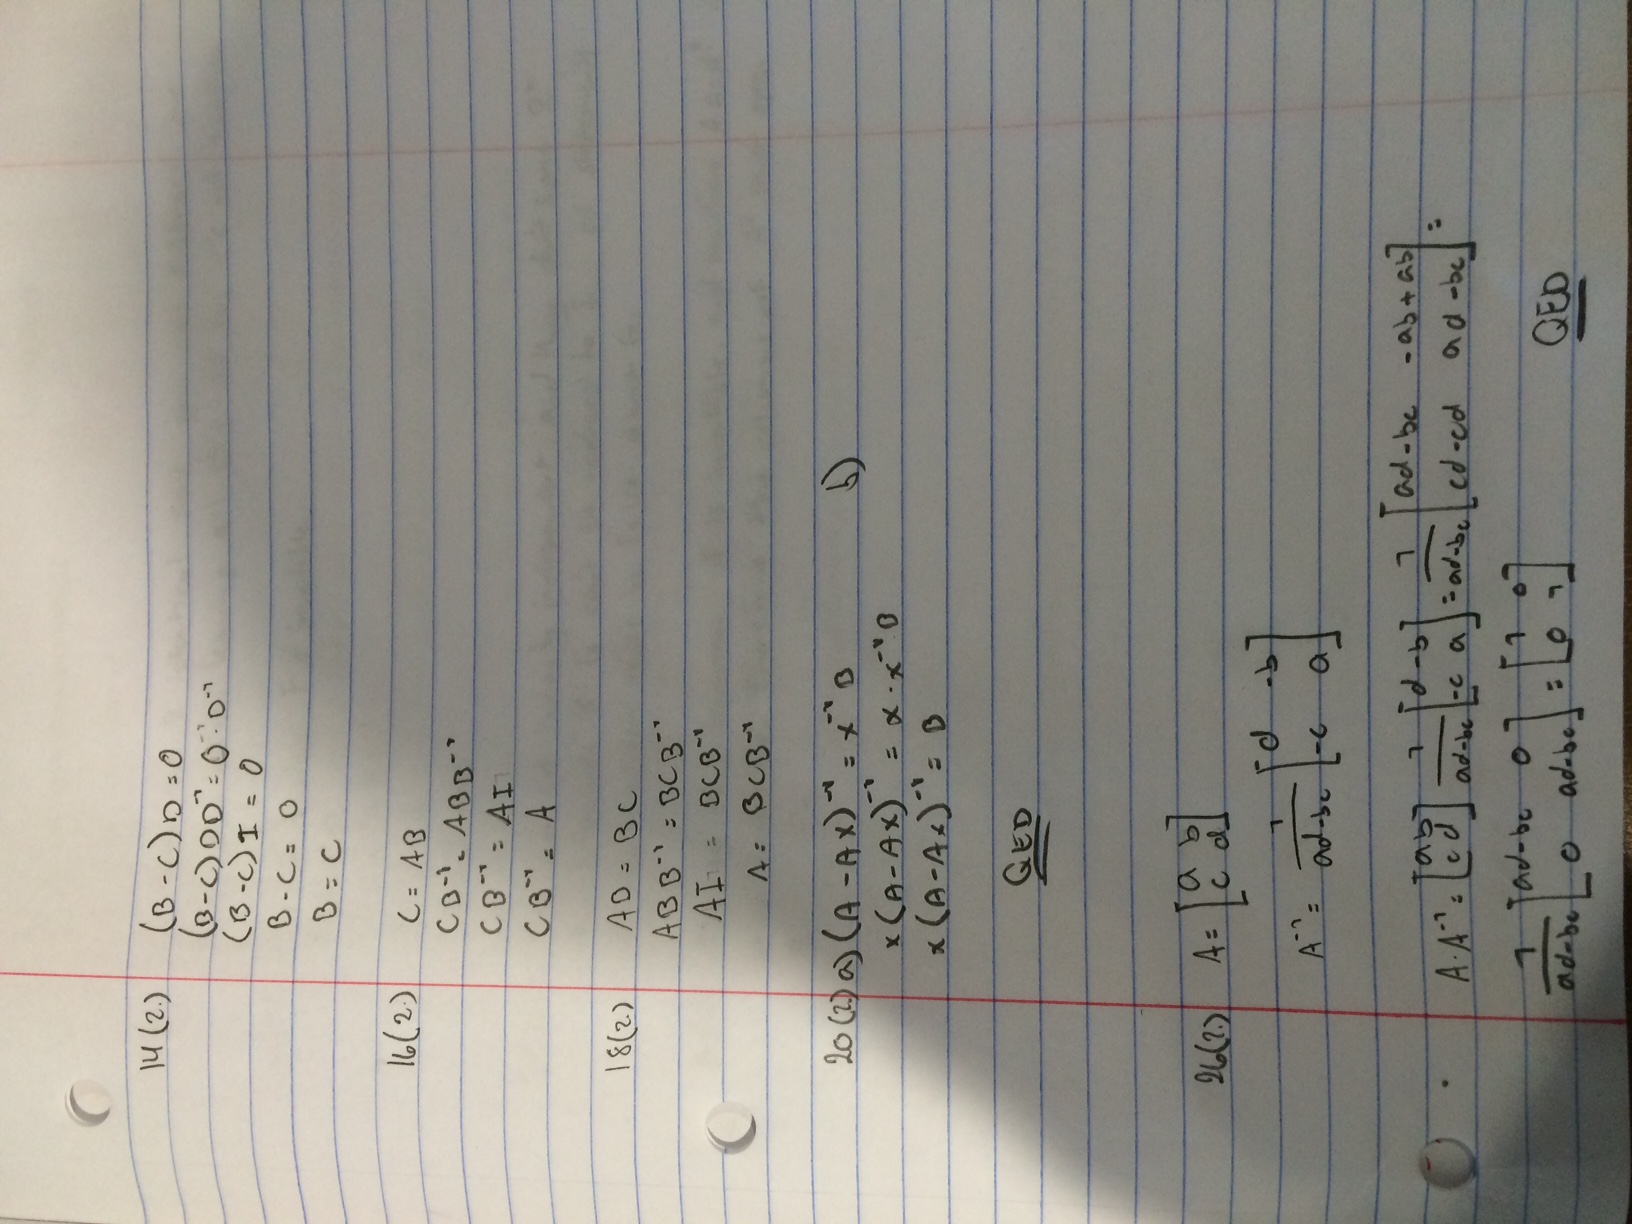 14(2.) (B-C)D=0
(B-C)DD⁻¹=0·D⁻¹
(B-C)I=0
B-C=0
B=C
16(2.) C=AB
CB⁻¹=ABB⁻¹
CB⁻¹=AI
CB⁻¹=A
18(2.) AB=BC
ABB⁻¹=BCB⁻¹
AI=BCB⁻¹
A=BCB⁻¹
20(2.) a) (A-AX)⁻¹=x⁻¹B b)
x(A-AX)⁻¹=x·x⁻¹B
x(A-Ax)⁻¹=B
QED
26(2.) A=[a b
c d]
A⁻¹=1/(ad-bc) [d -b
-c a]
A·A⁻¹=[a b
c d] 1/(ad-bc) [d -b
-c a]=1/(ad-bc) [ad-bc -ab+ab
cd-cd ad-bc]=
1/(ad-bc) [ad-bc 0
0 ad-bc]=[1 0
0 1] QED